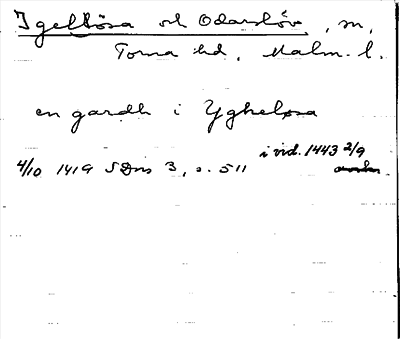 Igelösa och Odarslöv, sn,
Torna hd, Malm. l.
en gardh i Yghelosa
i vid. 1443 2/9
4/10 1419 SDns 3, s. 511